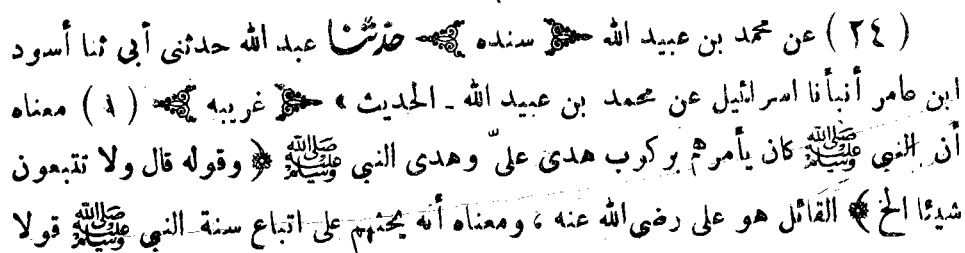 ( ٢٤ ) عن محمد بن عبيد الله ﴿ سنده ﴾ حدّثنا عبد الله حدثنى أبى ثنا أسود
ابن عامر أنبأنا اسرائيل عن محمد بن عبيد الله ـ الحديث » ﴿ غريبه ﴾ ( ١ ) معناه
أن النبى ﷺ كان يأمرهم بركوب هدى علىّ وهدى النبي ﷺ ﴿ وقوله قال ولا تتبعون
شيئا الخ ﴾ القائل هو على رضى الله عنه ، ومعناه أنه يحثهم على اتباع سنة النبى ﷺ قولا